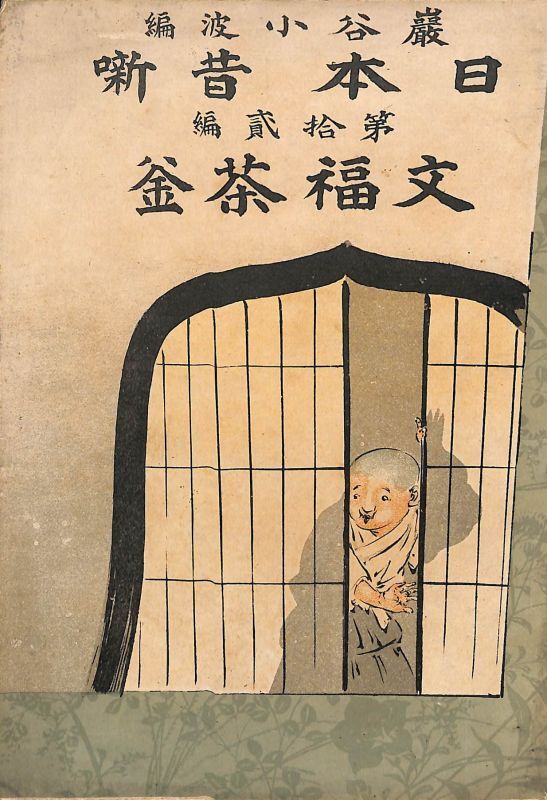 巖谷小波編
日本昔噺
第拾貳編
文福茶釜